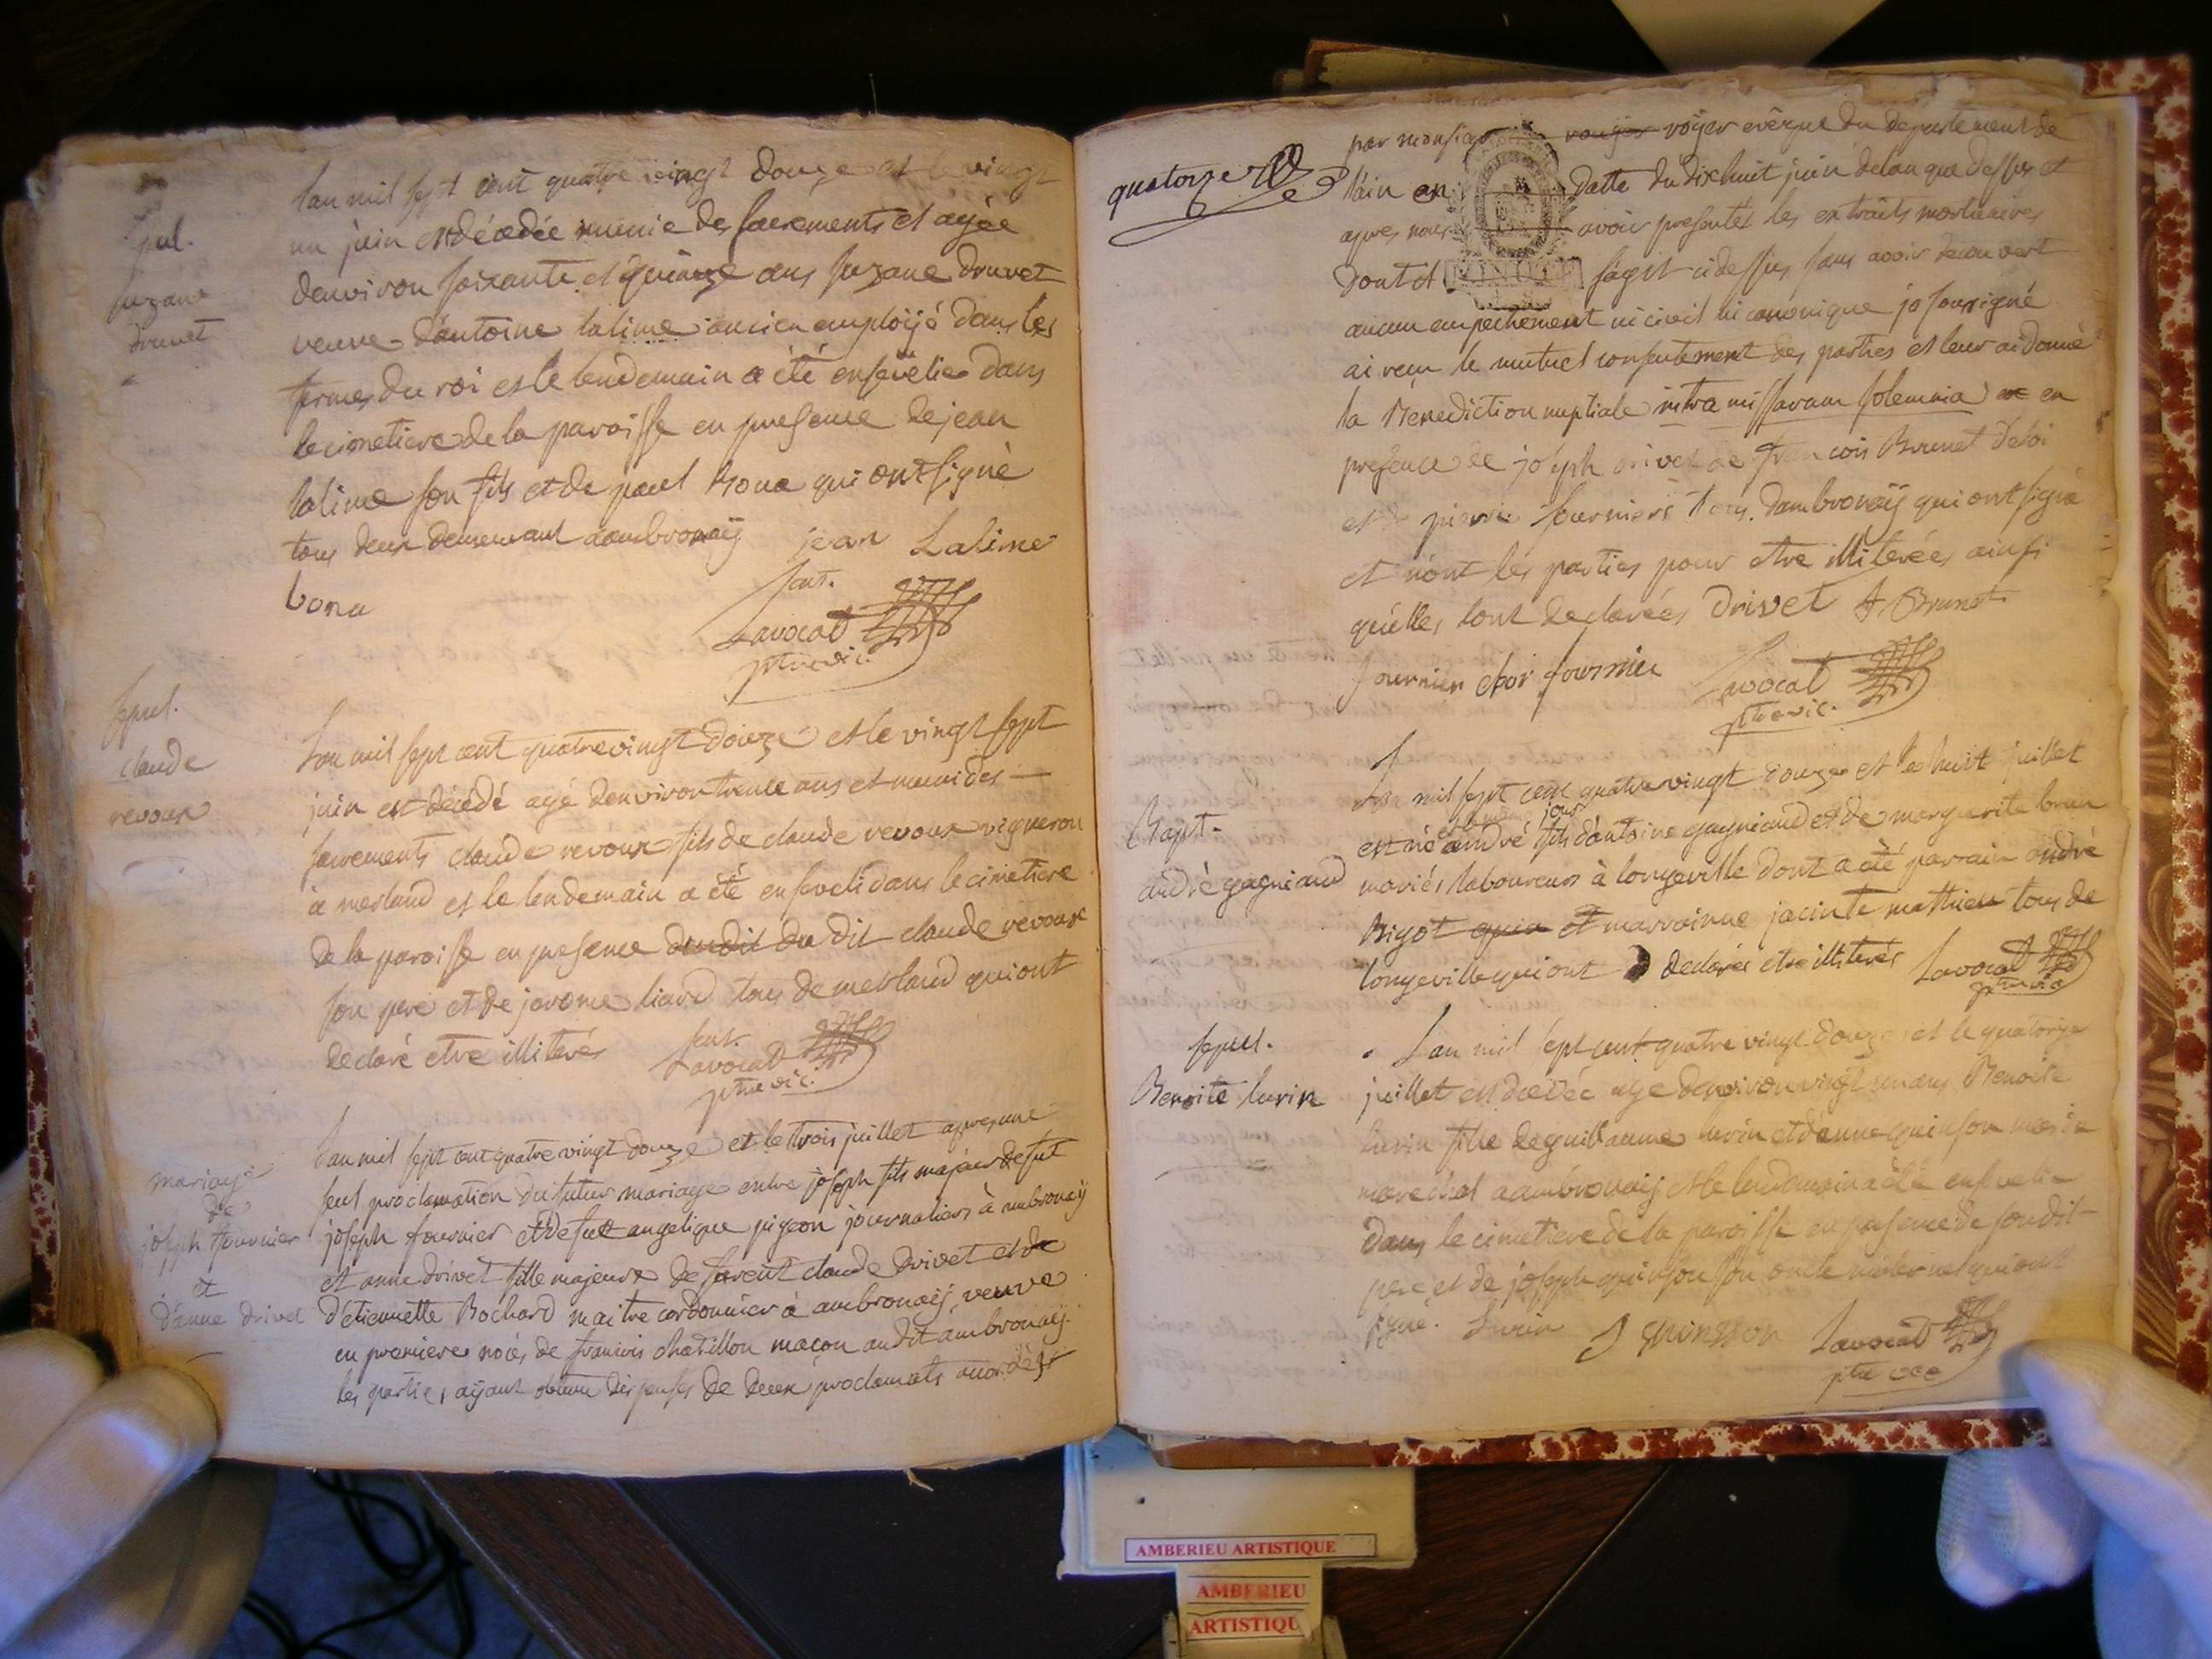 sepul.
suzane
druvet
lan mil sept cent quatre vingt douze et le vingt
un juin est décédée munie des sacrements et agée
denviron soixante et quinze ans suzane druvet
veuve d'antoine latime ancien employé dans les
fermes du roi et le lendemain a été ensevelie dans
le cimetiere de la paroisse en presence de jean
latime son fils et de paul bona qui ont signé
tous deux demeurant a ambronaÿ jean Latime
bona
Lavocat
ptre vic.
sepul.
claude
revoux
Lan mil sept cent quatre vingt douze et le vingt sept
juin est décédé agé denviron trente ans et muni des
sacrements claude revoux fils de claude revoux vigneron
à merland et le lendemain a été enseveli dans le cimetiere
de la paroisse en presence dudit du dit claude revoux
son pere et de jerome liard tous de merland qui ont
declaré etre illiterés
Lavocat
ptre vic.
mariage
de
joseph fournier
et
d'anne drivet
Lan mil sept cent quatre vingt douze et le trois juillet apres une
seul proclamation du futur mariage entre joseph fils majeur de fut
joseph fournier et de fut angelique pigeon journaliers à ambronaÿ
et anne drivet fille majeure de furent claude drivet et de
d'etiennette Bochard maitre cordonnier à ambronaÿ, veuve
en premiere noces de francois chatillon maçon au dit ambronaÿ
les parties aÿant obtenu dispenses de deux proclamats accordées
quatorze
par monsieur royer voÿer evêque du departement de
l'ain en datte du dixhuit juin de lan que dessus et
apres nous avoir presentés les extraits mortuaires
dont il s'agit ci dessus, sans avoir decouvert
aucun empechement ni civil ni canonique je soussigné
ai reçu le mutuel consentement des parties et leur ai donné
la Benediction nuptiale intra missarum solemnia en
presence de joseph drivet de francois Brunet
et de pierre fournier tous d'ambronaÿ qui ont signé
et n'ont les parties pour etre illiterées ainsi
qu'elles l'ont declarées Drivet f. Brunet
fournier fournier Lavocat
ptre vic.
Bapt.
andré gagniaud
Lan mil sept cent quatre vingt douze et le huit juillet
est né andré fils d'antoine gagniaud et de marguerite brun
mariés laboureurs à longeville dont a été parrain andré
Bigot et marrainne jacinte mathieu tous de
longeville qui ont declarés etre illiterés Lavocat
ptre vic
sepul.
Benoite lurin
Lan mil sept cent quatre vingt douze et le quatorze
juillet est décédée age denviron vingt un ans Benoite
lurin fille de guillaume lurin et d'anne quinson
marechal a ambronaÿ et le lendemain a été ensevelie
dans le cimetiere de la paroisse en presence de son dit
pere et de joseph quinson son oncle maternel qui ont
signé. Lurin J quinsson Lavocat
ptre vic
AMBERIEU ARTISTIQUE
AMBERIEU
ARTISTIQU